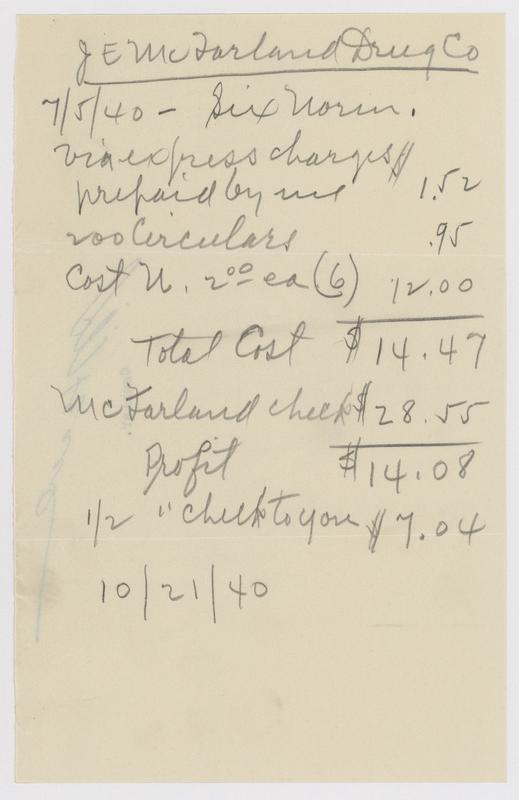 J E McFarland Drug Co
7/5/40 - Six Norm.
via express charges $
prepaid by me 1.52
200 Circulars .95
Cost N. 2.00 ea (6) 12.00
Total Cost $14.47
McFarland check $28.55
Profit $14.08
1/2 " check to you $7.04
10/21/40